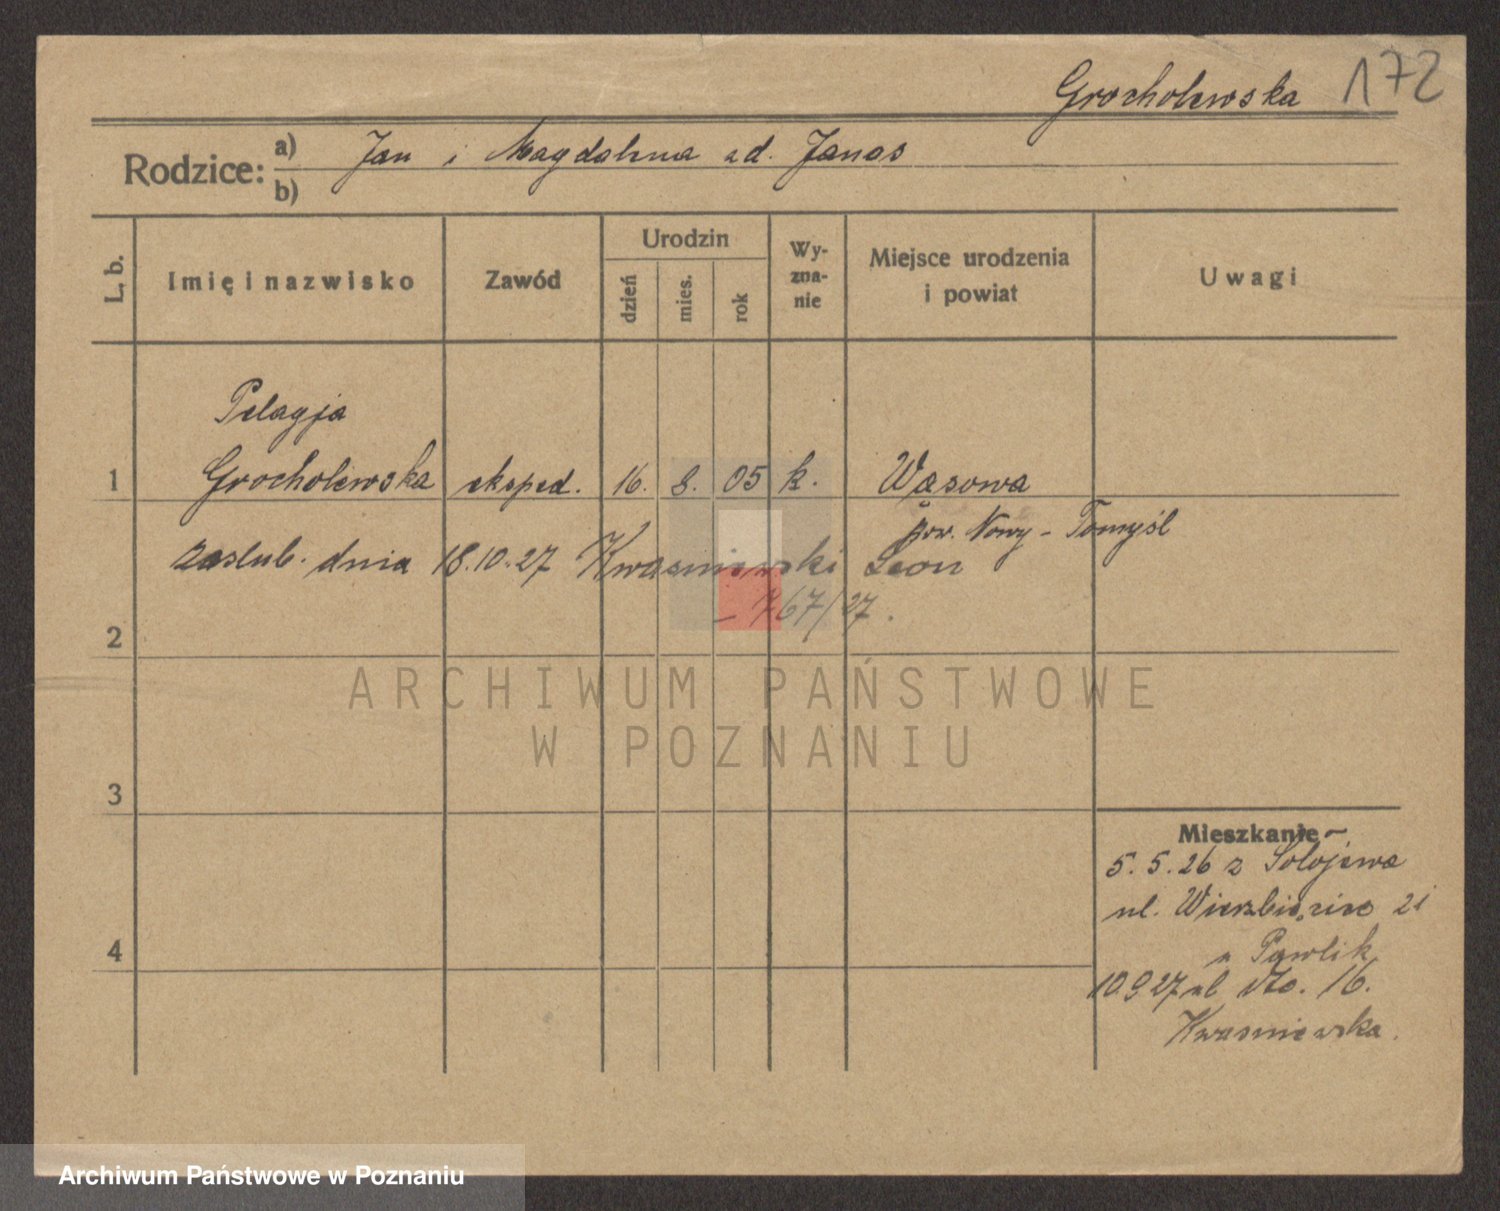 Grocholewska 172
Rodzice: a) Jan i Magdalena zd. Janas
b)
L. b.
Imię i nazwisko
Zawód
Urodzin
dzień
mies.
rok
Wy-
zna-
nie
Miejsce urodzenia
i powiat
Uwagi
Pelagja
1 Grocholewska eksped. 16. 8. 05 k. Wąsowa
pow. Nowy-Tomyśl
zaslub. dnia 18.10.27 Kwasniewski Leon
767/27.
2
ARCHIWUM PAŃSTWOWE
W POZNANIU
3
Mieszkanie
5.5.26 z
ul. Wierzbięcice 21
u Pawlik
4
10.9 27 ul. 16.
Kwasniewska.
Archiwum Państwowe w Poznaniu